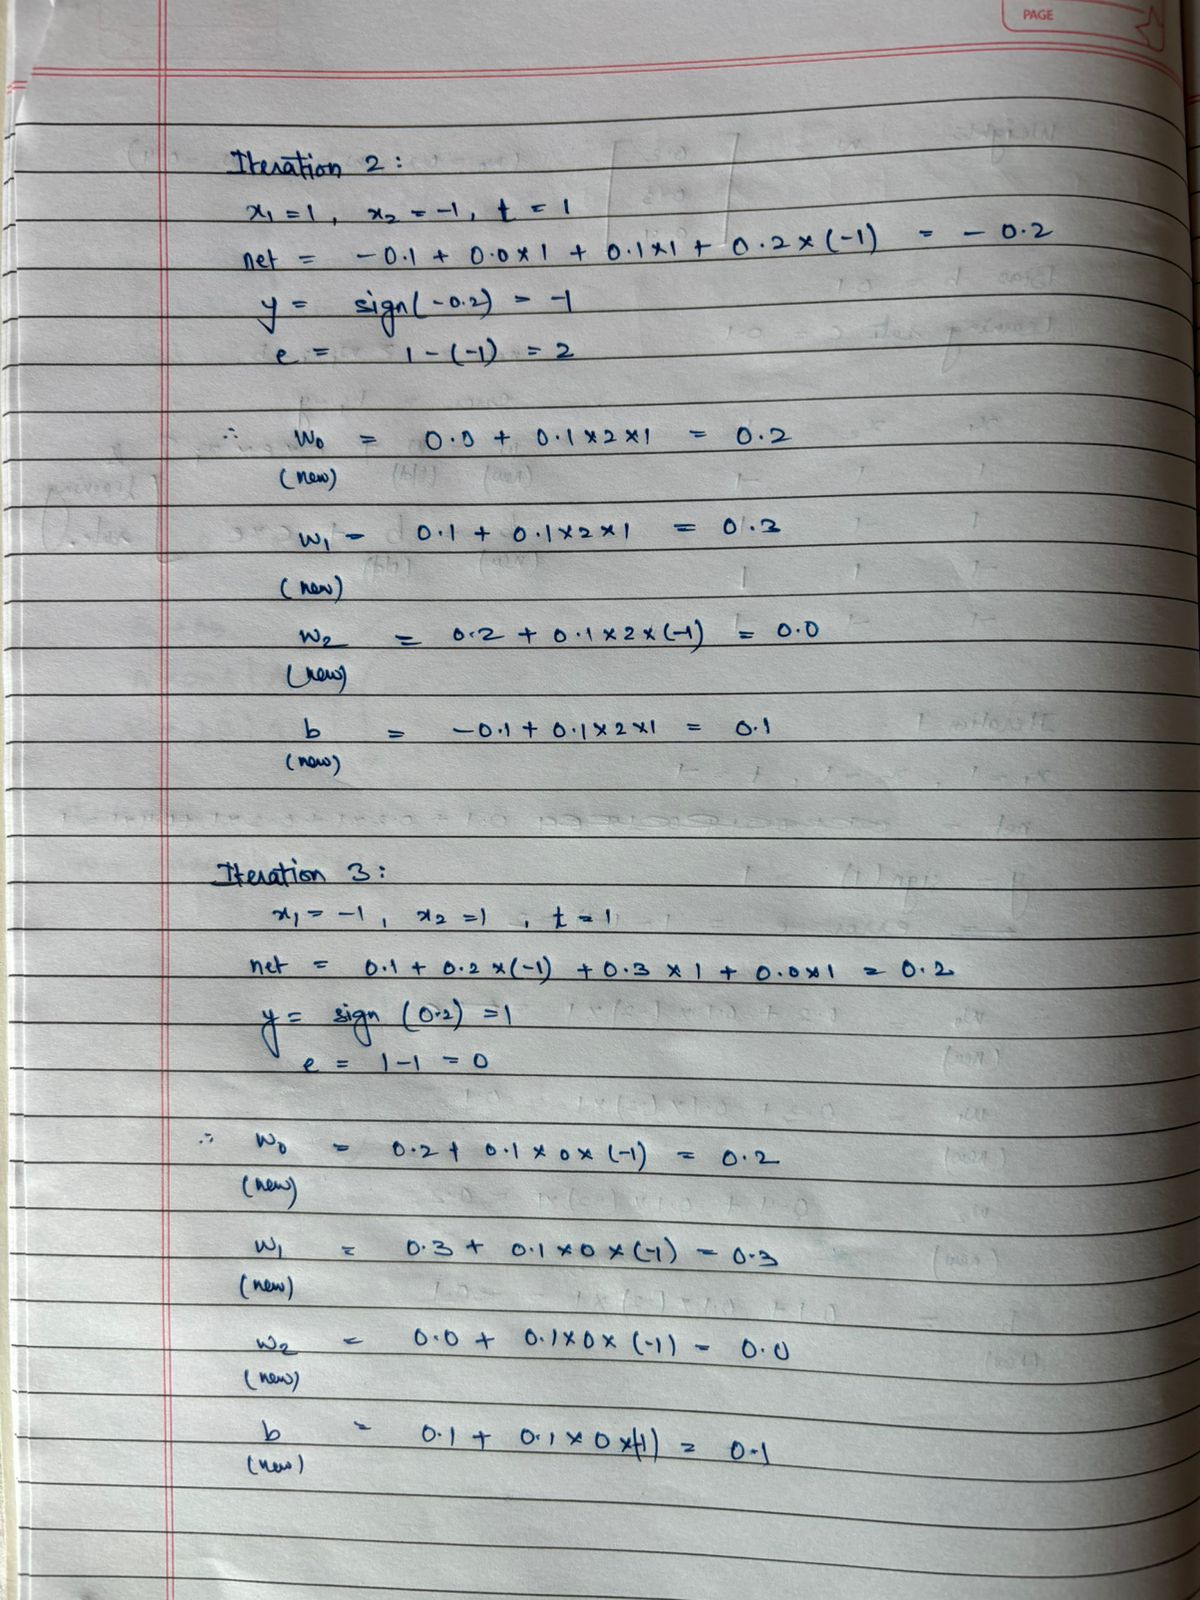 PAGE
Iteration 2:
x₁ = 1, x₂ = -1, t = 1
net = -0.1 + 0.0×1 + 0.1×1 + 0.2×(-1) = -0.2
y = sign(-0.2) = -1
e = 1-(-1) = 2
∴ W₀ = 0.0 + 0.1×2×1 = 0.2
(new)
W₁ = 0.1 + 0.1×2×1 = 0.3
(new)
W₂ = 0.2 + 0.1×2×(-1) = 0.0
(new)
b = -0.1 + 0.1×2×1 = 0.1
(new)
Iteration 3:
x₁ = -1, x₂ = 1, t = 1
net = 0.1 + 0.2×(-1) + 0.3×1 + 0.0×1 = 0.2
y = sign(0.2) = 1
e = 1-1 = 0
∴ W₀ = 0.2 + 0.1×0×(-1) = 0.2
(new)
W₁ = 0.3 + 0.1×0×(-1) = 0.3
(new)
W₂ = 0.0 + 0.1×0×(-1) = 0.0
(new)
b = 0.1 + 0.1×0×(-1) = 0.1
(new)